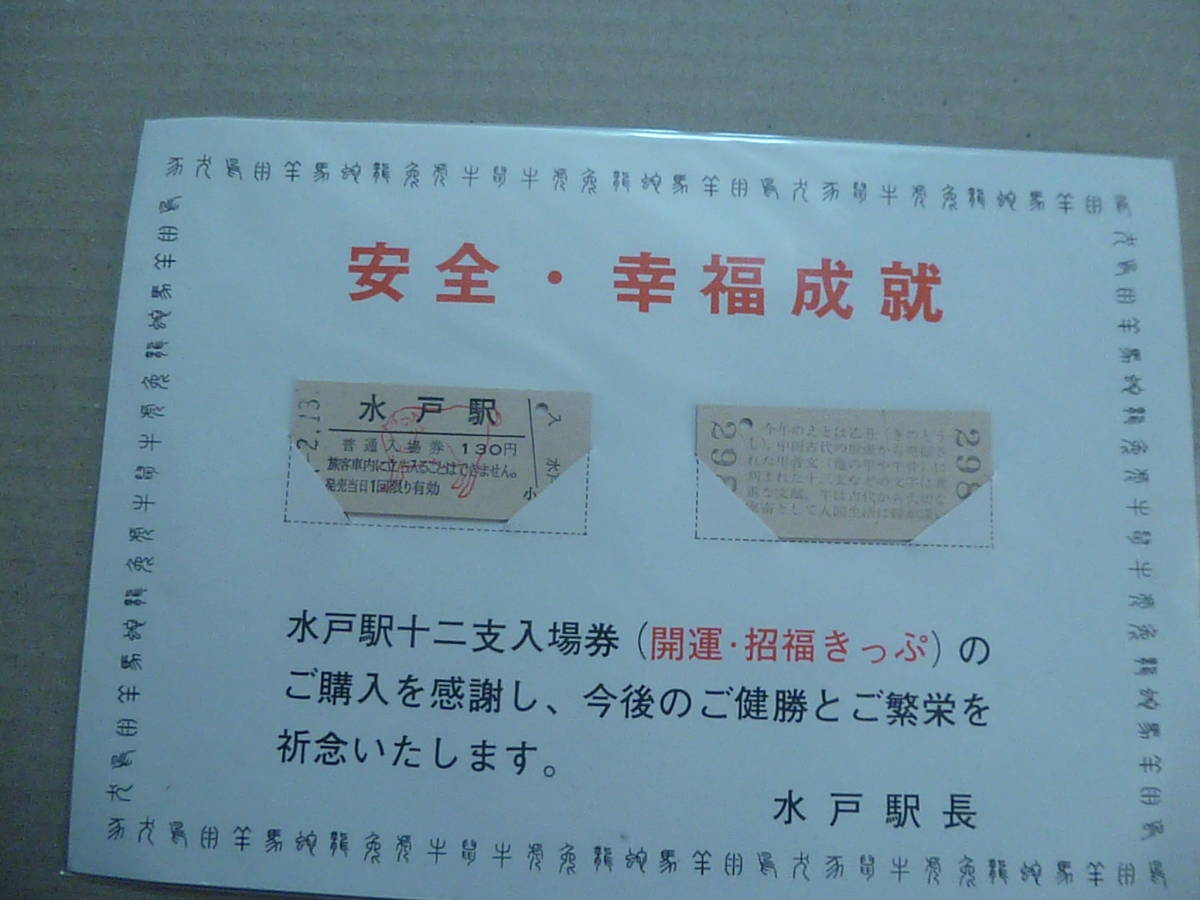 安全・幸福成就
2.13
水戸駅
普通入場券 130円
旅客車内に立ち入ることはできません。
発売当日1回限り有効
入
水戸
小
298
今年のえとは乙丑(きのとう
し)。中国古代の
れた甲骨文(亀の甲や牛骨)に
刻まれた十二支などの文字は貴
重な文献。牛は古代から大切な
家畜として人間生活に
298
水戸駅十二支入場券(開運・招福きっぷ)の
ご購入を感謝し、今後のご健勝とご繁栄を
祈念いたします。
水戸駅長